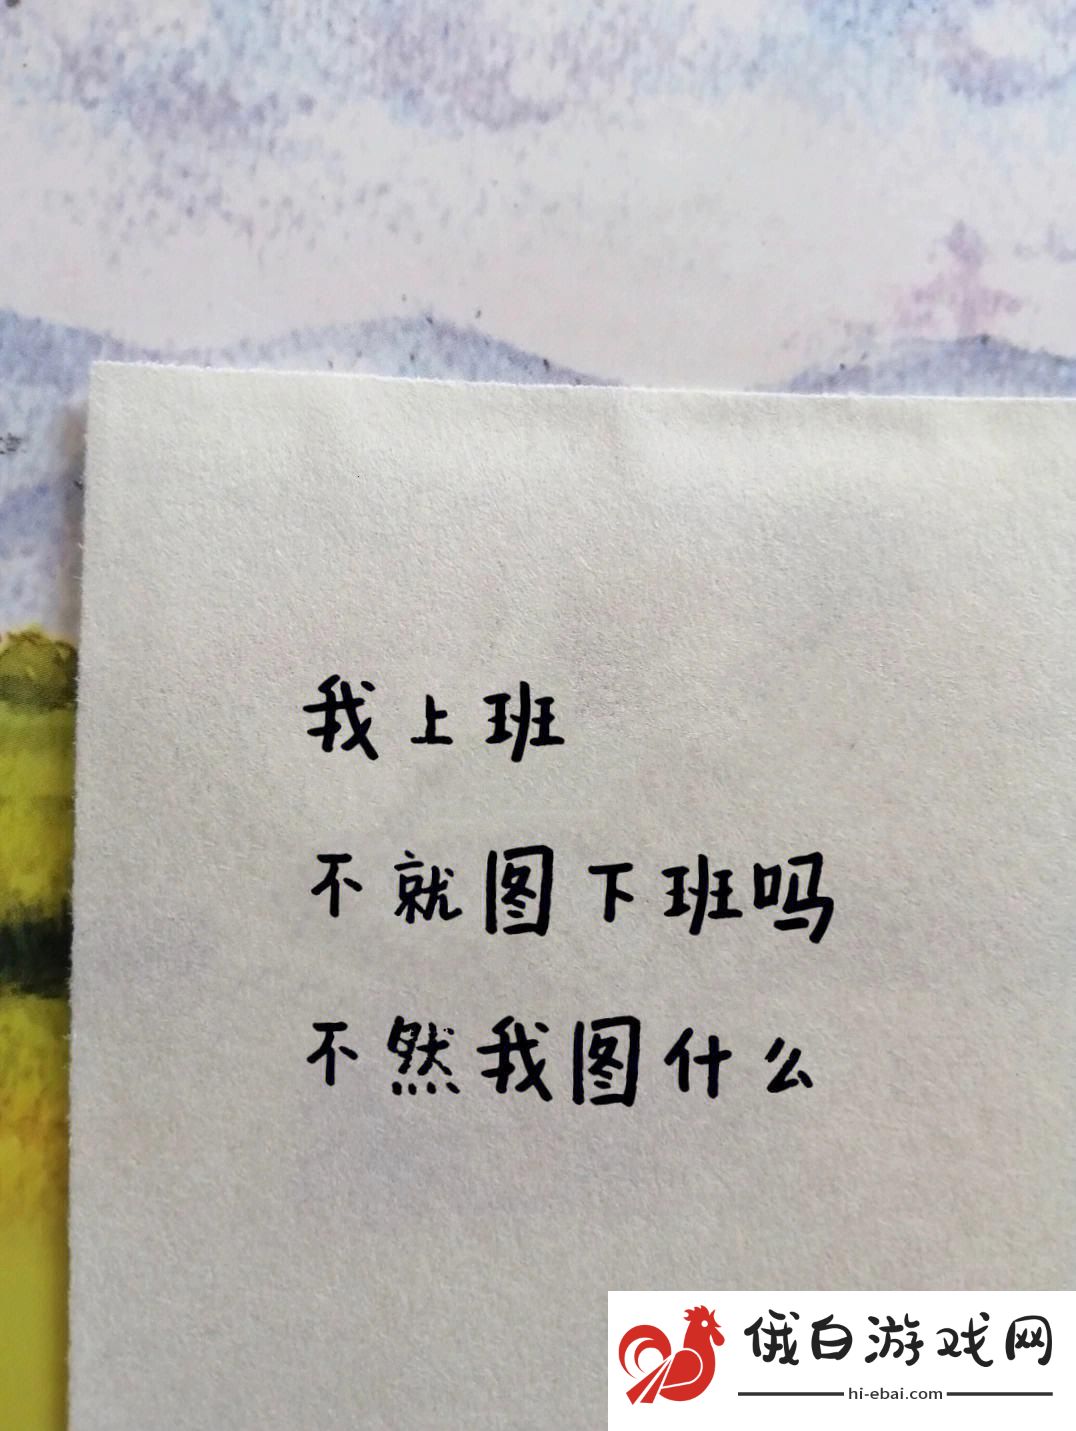 我上班
不就图下班吗
不然我图什么
俄白游戏网
hi-ebai.com